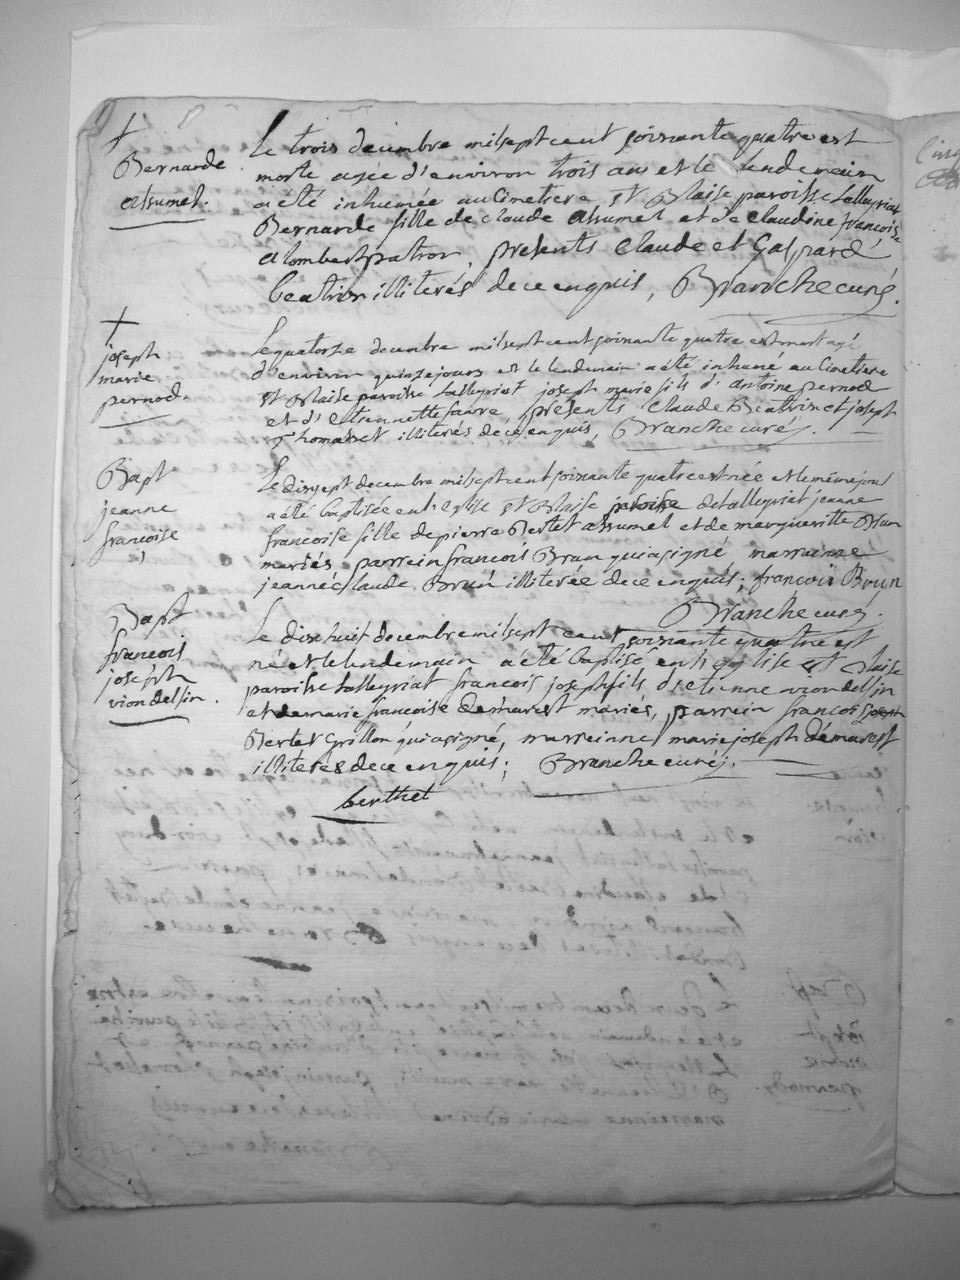 †
Bernarde
assumel.
Le trois decembre mil sept cent soixante quatre est
morte agée d'environ trois ans et le lendemain
a été inhumée au Cimetiere St Blaise paroisse Lalleyriat
Bernarde fille de claude assumel et de claudine françoise
alombert patron, présents claude et Gaspard
beatrix illiterés de ce enquis, Branche curé.
†
joseph
marie
pernod.
Le quatorze decembre mil sept cent soixante quatre est mort agé
d'environ quinze jours et le lendemain a été inhumé au Cimetiere
St Blaise paroisse Lalleyriat joseph marie fils d'antoine pernod
et d'Etiennette favre, présents claude Beatrix et joseph
Thomasset illiterés de ce enquis, Branche curé.
Bapt
jeanne
françoise
Le dixsept decembre mil sept cent soixante quatre est née et le meme jour
a été baptisée en l'eglise St Blaise paroisse de Lalleyriat jeanne
francoise fille de pierre Bertet assumel et de margueritte Brun
mariés, parrein francois Brun qui a signé, marreinne
jeanne claude Brun illiterée de ce enquis; francois Brun
Branche curé.
Bapt
francois
joseph
vion delfin.
Le dix huit decembre mil sept cent soixante quatre est
né et le lendemain a été baptisé en l'eglise St Blaise
paroisse Lalleyriat francois joseph fils d'etienne vion delfin
et de marie francoise demarest mariés, parrein francois joseph
Bertet Grillon qui a signé, marreinne marie joseph démarest
illiterés de ce enquis; Branche curé.
berthet